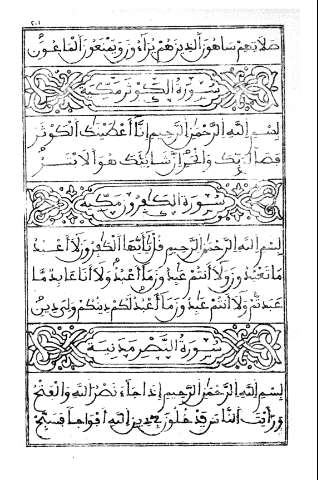 صَلَاتِهِمْ سَاهُونَ الذِينَ هُمْ يُرَآءُونَ وَيَمْنَعُونَ الْمَاعُونَ
سُورَةُ الْكَوْثَرِ مَكِّيَّة
بِسْمِ اللَّهِ الرَّحْمَٰنِ الرَّحِيمِ إِنَّا أَعْطَيْنَٰكَ الْكَوْثَرَ
فَصَلِّ لِرَبِّكَ وَانْحَرْ إِنَّ شَانِئَكَ هُوَ الَابْتَرُ
سُورَةُ الْكَٰفِرُونَ مَكِّيَّة
بِسْمِ اللَّهِ الرَّحْمَٰنِ الرَّحِيمِ قُلْ يَٰأَيُّهَا الْكَٰفِرُونَ لَا أَعْبُدُ
مَا تَعْبُدُونَ وَلَا أَنتُمْ عَٰبِدُونَ مَا أَعْبُدُ وَلَا أَنَا عَابِدٌ مَّا
عَبَدتُّمْ وَلَا أَنتُمْ عَٰبِدُونَ مَا أَعْبُدُ لَكُمْ دِينُكُمْ وَلِيَ دِينِ
سُورَةُ النَّصْرِ مَدَنِيَّة
بِسْمِ اللَّهِ الرَّحْمَٰنِ الرَّحِيمِ إِذَا جَآءَ نَصْرُ اللَّهِ وَالْفَتْحُ
وَرَأَيْتَ النَّاسَ يَدْخُلُونَ فِي دِينِ اللَّهِ أَفْوَاجًا فَسَبِّحْ